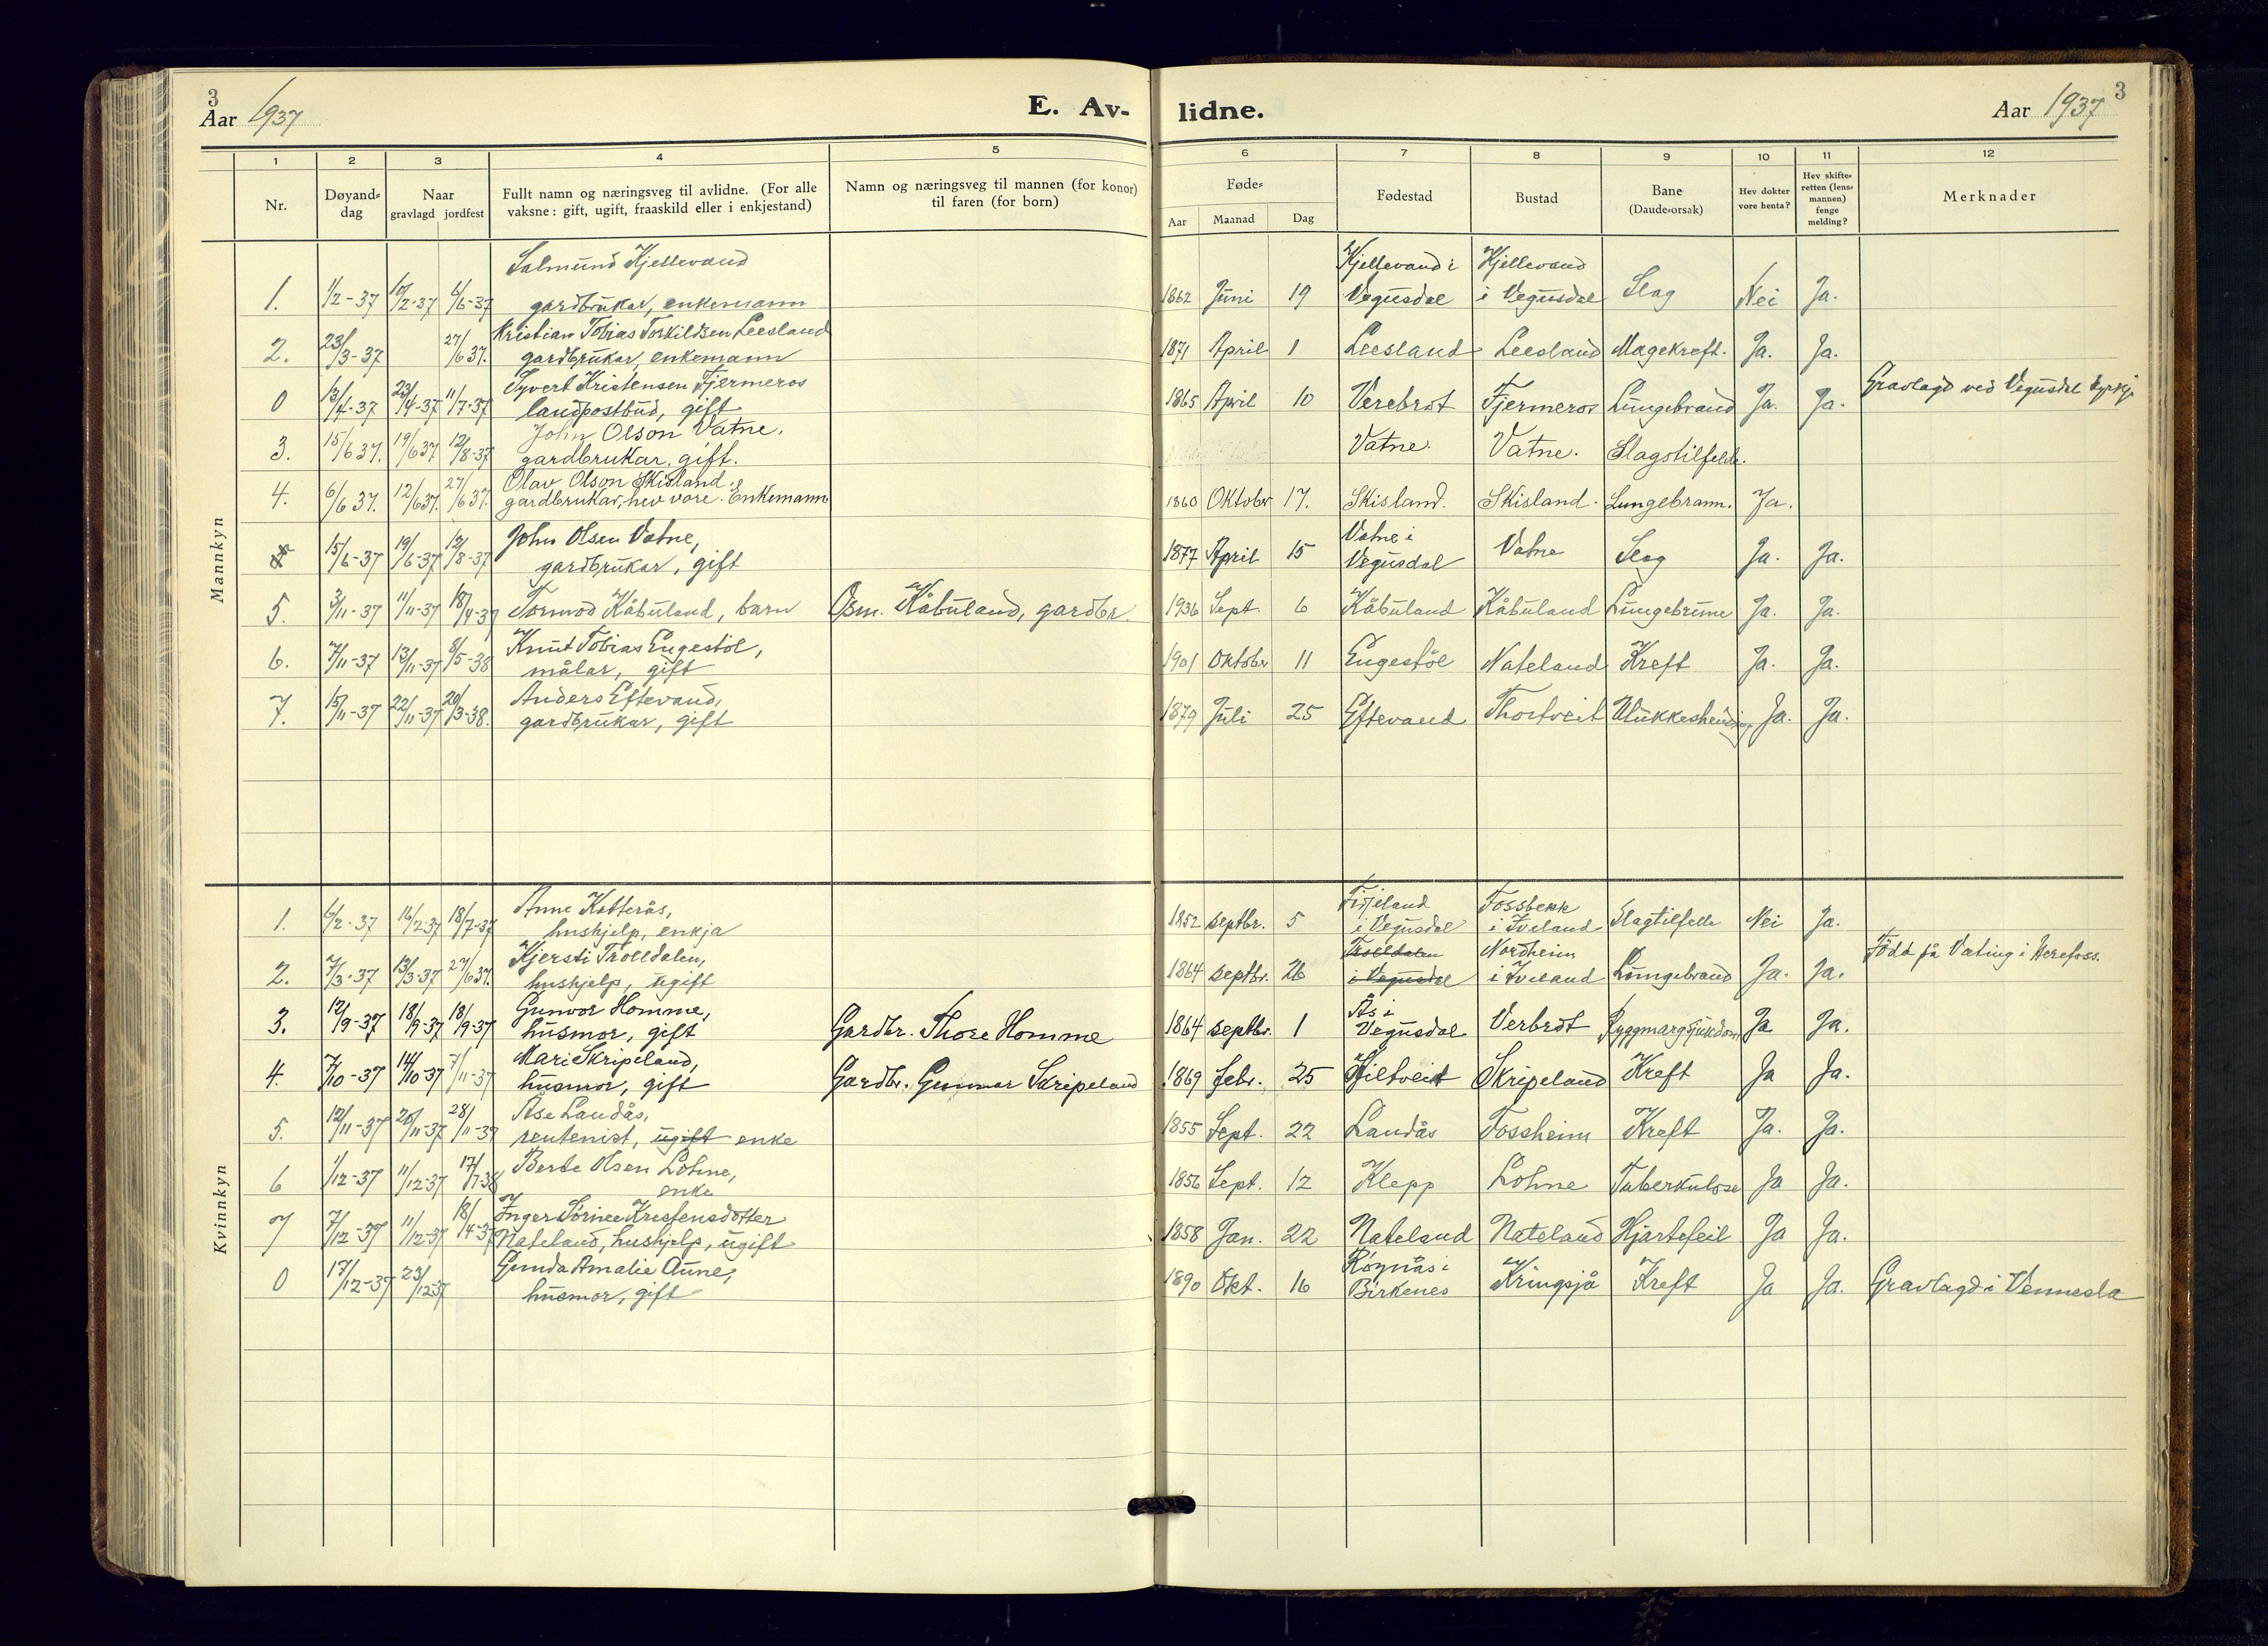 3
Aar 1937
E. Av-
lidne.
Aar 1937
3
1 2 3 4 5 6 7 8 9 10 11 12
Nr.
Døyand-dag
Naar
gravlagd jordfest
Fullt namn og næringsveg til avlidne. (For alle
vaksne: gift, ugift, fraaskild eller i enkjestand)
Namn og næringsveg til mannen (for konor)
til faren (for born)
Føde-
Aar Maanad Dag
Fødestad
Bustad
Bane
(Daude-orsak)
Hev dokter
vore henta?
Hev skifte-
retten (lens-
mannen)
fenge
melding?
Merknader
Mannkyn
Salmund Kjellevand Kjellevand i Kjellevand
1. 1/2-37 10/2-37 6/6-37 gardbrukar, enkemann 1862 Juni 19 Vegusdal i Vegusdal Slag Nei Ja.
Kristian Tobias Torkildsen Leesland
2. 23/3-37 27/6 37. gardbrukar, enkemann 1871 April 1 Leesland Leesland Magekreft. Ja. Ja.
Syvert Kristensen Fjermeros
0 13/4-37 23/4-37 11/7-37 landpostbud, gift 1865 April 10 Verebrot Fjermeros Lungebrand Ja. Ja. Gravlagd ved Vegusdal kyrkje
John Olson Vatne.
3. 15/6 37. 19/6 37. 12/8-37 gardbrukar, gift. Vatne. Vatne. Slagstilfelle.
Olav Olson Skisland,
4. 6/6 37. 12/6 37. 27/6 37. gardbrukar, hev vore. Enkemann 1860 Oktober 17. Skisland. Skisland. Lungebrann. Ja.
John Olsen Vatne, Vatne i
15/6-37 19/6-37 12/8-37 gardbrukar, gift 1877 April 15 Vegusdal Vatne Slag Ja. Ja.
5. 3/11-37 11/11-37 18/4-37 Tormod Kåbuland, barn Osm. Kåbuland, gardbr. 1936 Sept. 6 Kåbuland Kåbuland Lungebrune Ja. Ja.
Knut Tobias Engestøl,
6. 7/11-37 13/11-37 8/5-38 målar, gift 1901 Oktober 11 Engestøl Nateland Kreft Ja. Ja.
Anders Eftevand,
7. 15/11-37 22/11-37 20/3-38. gardbrukar, gift 1879 Juli 25 Eftevand Thortveit Ulukkeshending Ja. Ja.
Kvinnkyn
Anne Katterås, Fijeland Fossbekk
1. 6/2-37 16/2 37 18/7-37 hushjelp, enkja 1852 septbr. 5 i Vegusdal i Iveland Slagtilfelle Nei Ja.
Kjersti Trolldalen, Trolldalen Nordheim
2. 7/3-37 13/3-37 27/6 37. hushjelp, ugift 1864 septbr. 26 i Vegusdal i Iveland Lungebrand Ja. Ja. Född på Vating i Herefoss.
Gunvor Homme, Ås i
3. 12/9-37 18/9-37 18/9-37 husmor, gift Gardbr. Thore Homme 1864 septbr. 1 Vegusdal Verbrot Ryggmargsjukdom Ja Ja.
Mari Skripeland,
4. 7/10-37 14/10-37 7/11-37 husmor, gift Gardbr. Gunnar Skripeland 1869 febr. 25 Hiltveit Skripeland Kreft Ja Ja.
Åse Landås,
5. 12/11-37 20/11-37 28/11-37 rentenist, ugift enke 1855 Sept. 22 Landås Fossheim Kreft Ja. Ja.
Berte Olsen Lohne,
6 1/12-37 11/12-37 17/7-38 enke 1856 Sept. 12 Klepp Lohne Tuberkulose Ja Ja.
Inger Sørine Kristensdotter
7 7/12-37 11/12-37 18/4-37 Nateland, hushjelp, ugift 1858 Jan. 22 Nateland Nateland Hjartefeil Ja Ja.
Gunda Amalie Aune, Rognås i
0 17/12-37 23/12-37 husmor, gift 1890 Okt. 16 Birkenes Kringsjå Kreft Ja Ja. Gravlagd i Vennesla